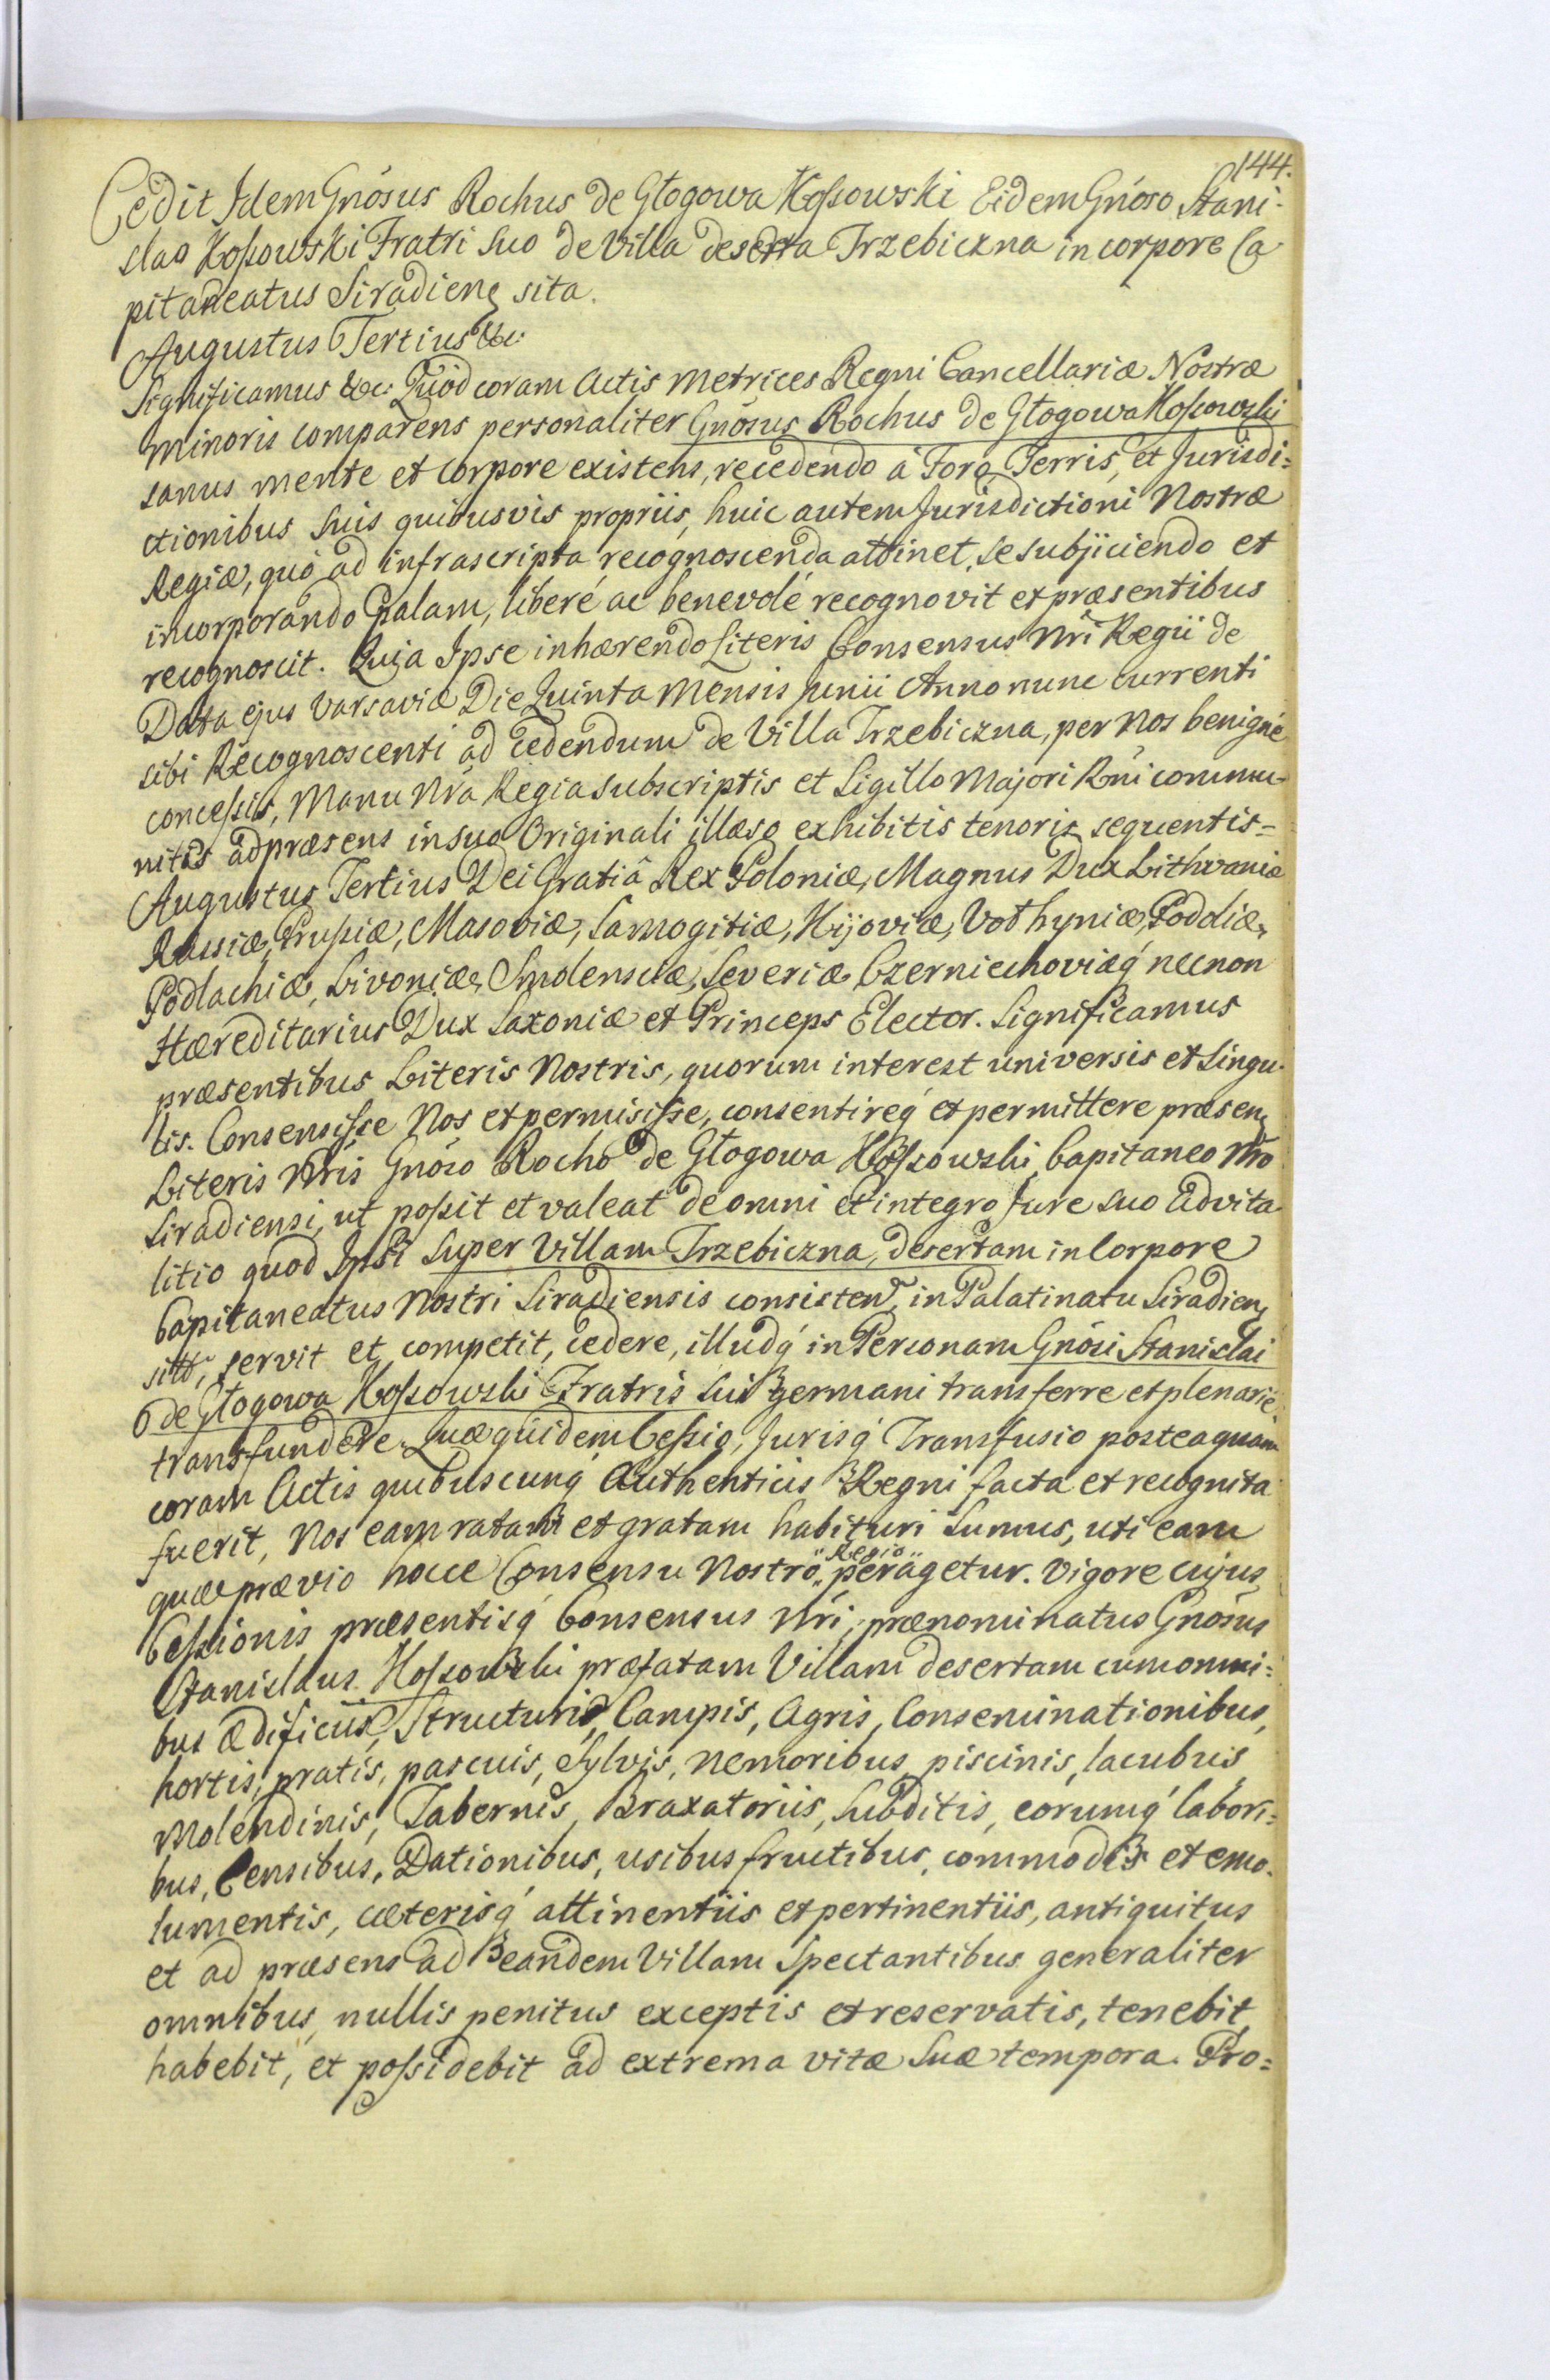 144.
Cedit Idem Gnõsus Rochus de Głogowa Koſsowski Eidem Gnõso Stani-
slao Koſsowski Fratri Suo de Villa deserta Trzebiczna in corpore Ca
pitaneatus Siradien̄ sita.
Augustus Tertius &c:
Significamus &c: Quod coram Actis Metrices Regni Cancellariæ Nostræ
Minoris comparens personaliter Gnõsus Rochus de Głogowa Koſsowski
sanus mente et corpore existens, recedendo à Foro, Terris, et Jurisdi=
ctionibus Suis quibusvis propriis, huic autem Jurisdictioni Nostræ
Regiæ, quò ad infrascripta recognoscenda attinet, se subjiciendo et
incorporando Palam, liberé ac benevolé recognovit et præsentibus
recognoscit. Quia Ipse inhærendo Literis Consensus Nri Regii de
Data ejus Varsaviæ Die Quinta Mensis Junii Anno nunc currenti
sibi Recognoscenti ad cedendum de Villa Trzebiczna, per Nos benigné
conceſsis, Manu Nrã Regia subscriptis et Sigillo Majori Rñi commu-
nitis ad præsens in suo Originali illæso exhibitis tenoris sequentis=
Augustus Tertius Dei Gratiâ Rex Poloniæ, Magnus Dux Lithvaniæ
Russiæ, Pruſsiæ, Masoviæ, Samogitiæ, Kijoviæ, Vołhyniæ, Podoliæ,
Podlachiæ, Livoniæ, Smolensciæ, Severiæ Czerniechoviæq́ necnon
Hæreditarius Dux Saxoniæ et Princeps Elector. Significamus
præsentibus Literis Nostris, quorum interest universis et Singu-
lis. Consensiſse Nos et permisiſse, consentireq́ et permittere præsen̄
Literis Nris Gnõso Rocho de Głogowa Koſsowski Capitaneo Nro
Siradiensi, ut poſsit et valeat de omni et integro Jure suo Advita
litio quod Ipsi super Villam Trzebiczna desertam in Corpore
Capitaneatus Nostri Siradiensis consisten̄, in Palatinatu Siradien̄
sita, servit et competit, cedere, illudq́ in Personam Gnõsi Stanislai
de Głogowa Koſsowski Fratris sui germani transferre et plenarie
transfundere. Quæ quidem Ceſsio, Jurisq́ Transfusio posteaquam
coram Actis quibuscunq́ Authenticis Regni facta et recognita
fuerit, Nos eam ratam et gratam habituri sumus, uti eam
quæ prævio hocce Consensu Nostro „Regio„ peragetur. Vigore cujus
Ceſsionis præsentisq́ Consensus Nri, prænominatus Gnõsus
Stanislaus Koſsowski præfatam Villam desertam cum omni=
bus ædificiis, Structuris, Campis, Agris, Conseminationibus,
hortis, pratis, pascuis, Sylvis, Nemoribus, piscinis, lacubus,
Molendinis, Tabernis, Braxatoriis, Subditis, eorumq́ labori=
bus, Censibus, Dationibus, usibus fructibus, commodis et emo-
lumentis, cæterisq́ attinentiis et pertinentiis, antiquitus
et ad præsens ad eandem Villam Spectantibus generaliter
omnibus, nullis penitus exceptis et reservatis, tenebit,
habebit, et poſsidebit ad extrema vitæ Suæ tempora. Pro=